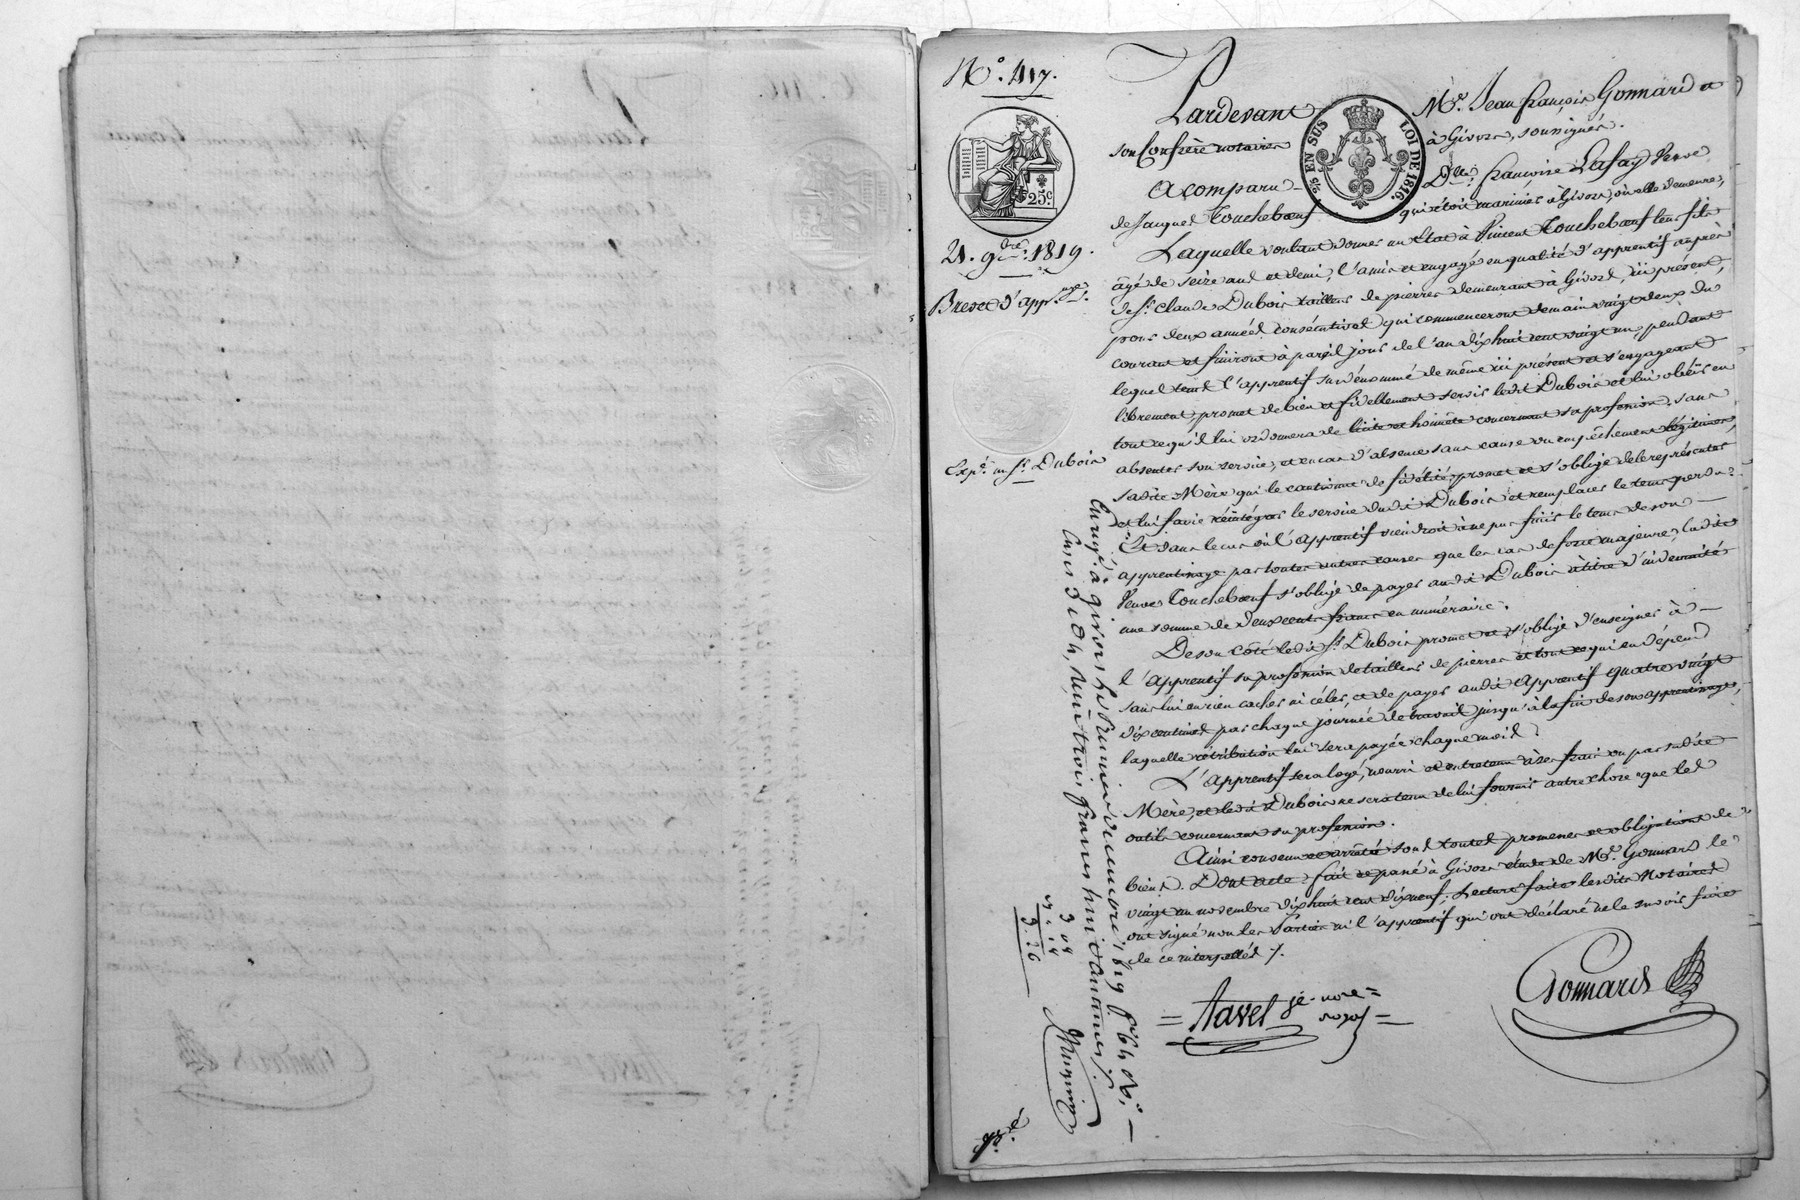 N.° 417.
Pardevant Me. Jean françois Gonnard et
son Confrère notaires à Givors, soussignés.
A comparu Dlle. françoise Lafay Veuve
de Jacques Touchebœuf qui étoit marinier à Givors, où elle demeure,
EN SUS LOI DE 1816.
25c
21. 9bre. 1819.
Brevet d'appge.
Laquelle voulant donner un Etat à Vincent Touchebœuf leur fils
âgé de seize ans et demi, l'a mis et engagé en qualité d'apprentif auprès
de Sr. Claude Dubois tailleur de pierres demeurant à Givors, ici présent,
pour deux années consécutives qui commenceront demain vingt deux du
courant et finiront à pareil jour de l'an dix huit cent vingt un, pendant
lequel tems l'apprentif susdénommé de même ici présent et s'engageant
librement, promet de bien et fidellement servir ledit Dubois et lui obéir en
tout ce qu'il lui ordonnera de licite et honnête concernant sa profession, sans
absenter son service, et en cas d'absence sans cause ou empêchement légitimes,
Expé. au Sr. Dubois
sadite Mère qui le cautionne de fidélité, promet et s'oblige de le représenter
et lui faire réintégrer le service dudit Dubois et remplacer le tems perdu.
Et dans le cas où l'apprentif viendroit à ne pas finir le tems de son
apprentissage par toutes autres causes que les cas de force majeure, ladite
Veuve Touchebœuf s'oblige de payer audit Dubois à titre d'indemnité
une somme de deux cents francs en numéraire.
De son côté ledit Sr. Dubois promet et s'oblige d'enseigner à
l'apprentif sa profession de tailleur de pierres et tout ce qui en dépend
sans lui en rien cacher ni céler, et de payer audit apprentif quatre vingt
dix centimes par chaque journée de travail jusqu'à la fin de son apprentissage,
laquelle rétribution lui sera payée chaque mois.
L'apprentif sera logé, nourri et entretenu à ses frais ou par sadite
Mère, et ledit Dubois ne sera tenu de lui fournir autre chose que les
outils concernant sa profession.
Ainsi convenu et arrêté sous toutes promesses et obligations de
biens. Dont acte; fait et passé à Givors étude de Me. Gonnard le
vingt un novembre dix huit cent dix neuf; Lecture faite lesdits Notaires
ont signé non les Parties ni l'apprentif qui ont déclaré ne le savoir faire
de ce interpellés ./.
Tavel
Gonnard
Enregé. à givors le vingt deux novembre 1819
trois francs huit centimes